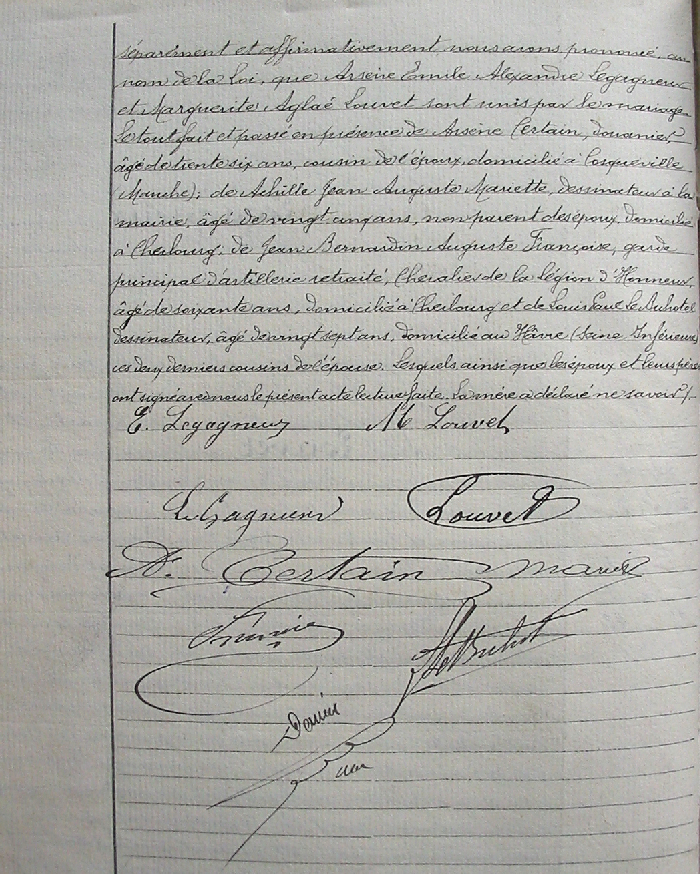 séparément et affirmativement nous avons prononcé, au
nom de la loi, que Arsène Emile Alexandre Legagneux
et Marguerite Aglaé Louvet sont unis par le mariage.
Le tout fait et passé en présence de Arsène Certain, douanier,
âgé de trente six ans, cousin de l'époux, domicilié à Cosqueville
(Manche); de Achille Jean Auguste Mariette, dessinateur à la
mairie, âgé de vingt cinq ans, non parent des époux, domicilié
à Cherbourg; de Jean Bernardin Auguste Françoise, garde
principal d'artillerie retraité, Chevalier de la légion d'Honneur,
âgé de soixante ans, domicilié à Cherbourg et de Louis Paul le Buhotel
dessinateur, âgé de vingt sept ans, domicilié au Hâvre (Seine Inférieure)
ces deux derniers cousins de l'épouse. Lesquels ainsi que les époux et leurs pères
ont signé avec nous le présent acte lecture faite. La mère a déclaré ne savoir /.
E. Legagneux M Louvet
Legagneux Louvet
A. Certain
Le Buhot